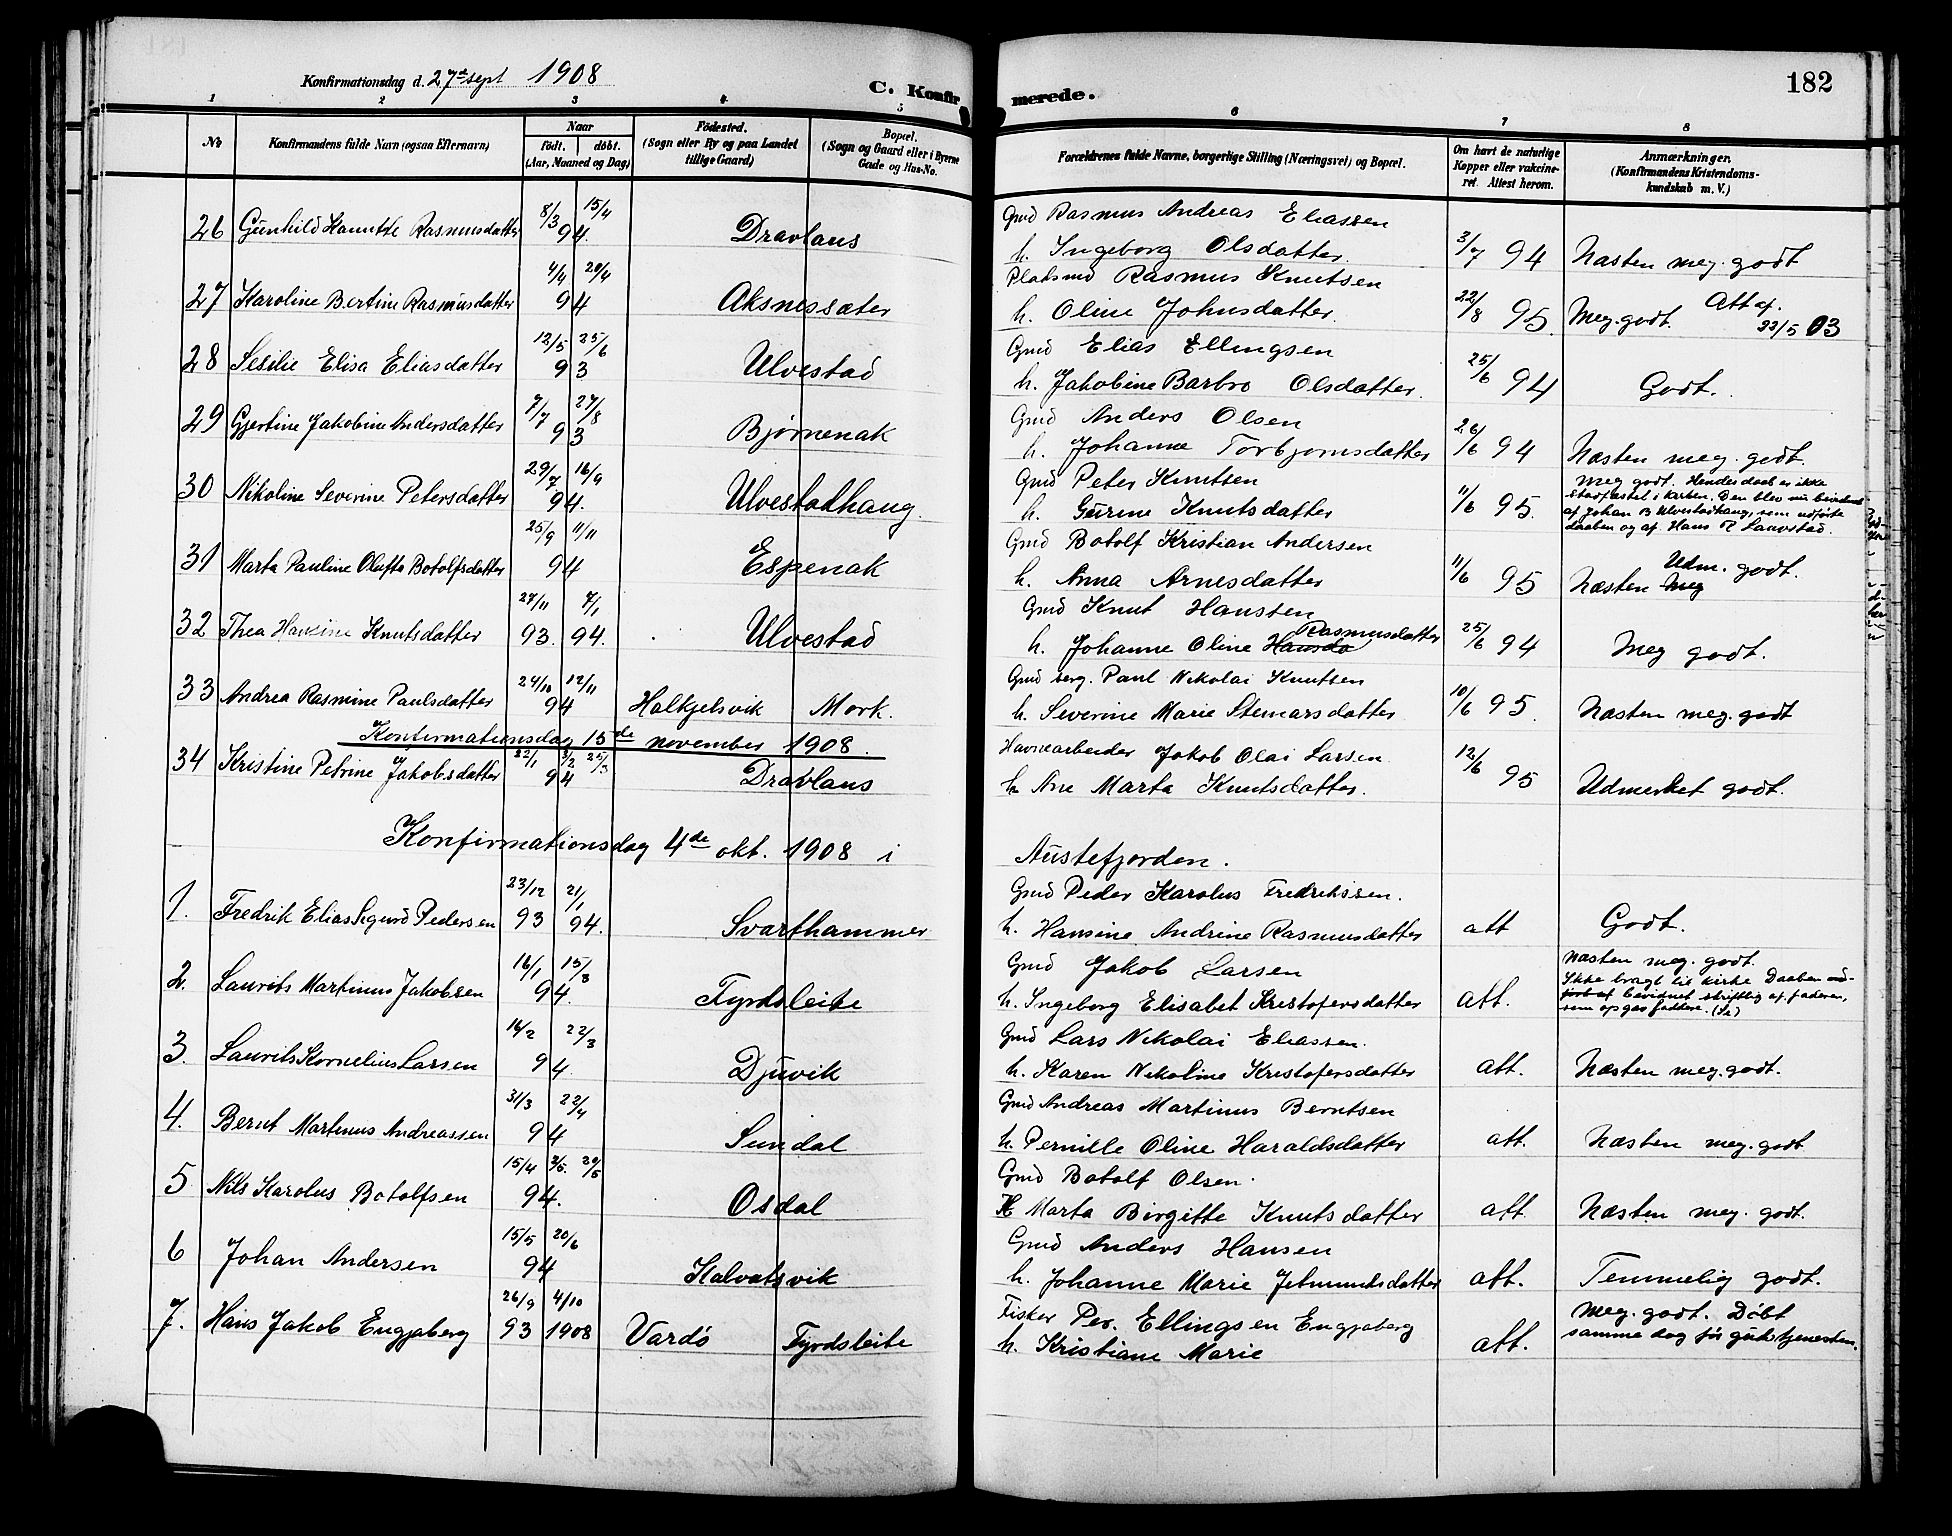 Konfirmationsdag d. 27de sept 1908
C. Konfirmerede.
182
1 2 3 4 5 6 7 8
No
Konfirmandens fulde Navn (ogsaa Efternavn)
Naar
født. døbt.
(Aar, Maaned og Dag)
Fødested.
(Sogn eller By og paa Landet
tillige Gaard)
Bopæl.
(Sogn og Gaard eller i Byerne
Gade og Hus-No.
Forældrenes fulde Navne, borgerlige Stilling (Næringsvei) og Bopæl.
Om havt de naturlige
Kopper eller vaccine-
ret. Attest herom.
Anmærkninger.
(Konfirmandens Kristendoms-
kundskab m. V.)
26 Gunhild Rasmusdatter 8/3 15/4 94. Dravlaus Gmd Rasmus Andreas Eliassen
h. Ingeborg Olsdatter. 3/7 94 Næsten meg. godt
27 Karoline Bertine Rasmusdatter 4/4 20/4 94 Aksnessæter Pladsmd Rasmus Knutsen
h. Oline Johnsdatter. 22/8 95. Meg. godt. Att af. 22/5 03
28 Sesilie Elisa Eliasdatter 12/5 25/6 93 Ulvestad Gmd Elias Ellingsen
h. Jakobine Barbro Olsdatter. 25/6 94 Godt.
29 Gjertine Jakobine Andersdatter 7/7 27/8 93 Bjørnenak Gmd Anders Olsen
h. Johanne Torbjørnsdatter 26/6 94 Næsten meg. godt.
30 Nikoline Severine Petersdatter 29/7 16/9 94. Ulvestadhaug. Gmd Peter Knutsen
h. Gurine Knutsdatter 11/6 95. Meg godt. Hendes daab er ikke
stadfæstet i kirken. Den blev nu bevidnet
af Johan B Ulvestadhaug, som udførte
daaben og af Hans R Lauvstad.
31 Marta Pauline Olufta Botolfsdatter 25/9 11/11 94 Espenak Gmd Botolf Kristian Andersen
h. Anna Arnesdatter 11/6 95 Næsten meg Udm. godt.
32 Thea Hansine Knutsdatter 27/11 93. 7/1 94. Ulvestad Gmd Knut Hansen
h. Johanne Oline Hansda Rasmusdatter 25/6 94 Meg godt.
33 Andrea Rasmine Paulsdatter 24/10 12/11 94 Halkjelsvik Mork. Gmd serg. Paul Nikolai Knutsen
h. Severine Marie Steinarsdatter 10/6 95. Næsten meg. godt
Konfirmationsdag 15de november 1908.
34 Kristine Petrine Jakobsdatter 22/1 3/2 25/3 94 Dravlaus Havnearbeider Jakob Olai Larsen
h. Ane Marta Knutsdatter. 12/6 95 Udmerket godt.
Konfirmationsdag 4de okt. 1908 i Austefjorden.
1. Fredrik Elias Sigurd Pedersen 23/12 93 21/1 94. Svarthammer Gmd Peder Karolus Fredrikssen.
h. Hansine Andrine Rasmusdatter att Godt.
2. Laurits Martinus Jakobsen 16/1 15/3 94. Fyrdsleite Gmd Jakob Larsen
h. Ingeborg Elisabet Kristofersdatter att. Næsten meg. godt.
Ikke bragt til kirke Daaben ud-
ført af bevidnet skriftlig af faderen,
som opgav faddere.
3. Laurits Kornelius Larsen 16/2 22/3 94. Djuvik Gmd Lars Nikolai Eliassen.
h. Karen Nikoline Kristofersdatter att. Næsten meg. godt.
4. Bernt Martinus Andreassen 31/3 22/4 94 Sundal Gmd Andreas Martinus Berntsen
h. Pernille Oline Haraldsdatter att. Næsten meg. godt
5 Nils Karolus Botolfsen 15/4 2/5. 20/5 94. Osdal Gmd Botolf Olsen.
h Marta Birgitte Knutsdatter att Næsten meg. godt.
6 Johan Andersen 15/5 20/6 94 Kalvatsvik Gmd Anders Hansen
h. Johanne Marie Jetmundsdatter att. Temmelig godt.
7. Hans Jakob Engjaberg 26/9 93 4/10 1908 Vardø Fyrdsleite Fisker Per. Ellingsen Engjaberg
h. Kristiane Marie att. Meg. godt. Døbt
samme dag før gudstjenesten.